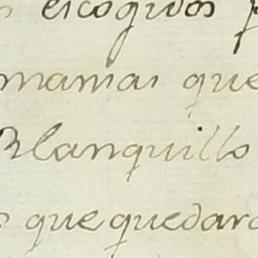 escogidos
mamas que
Blanquillo
que quedar